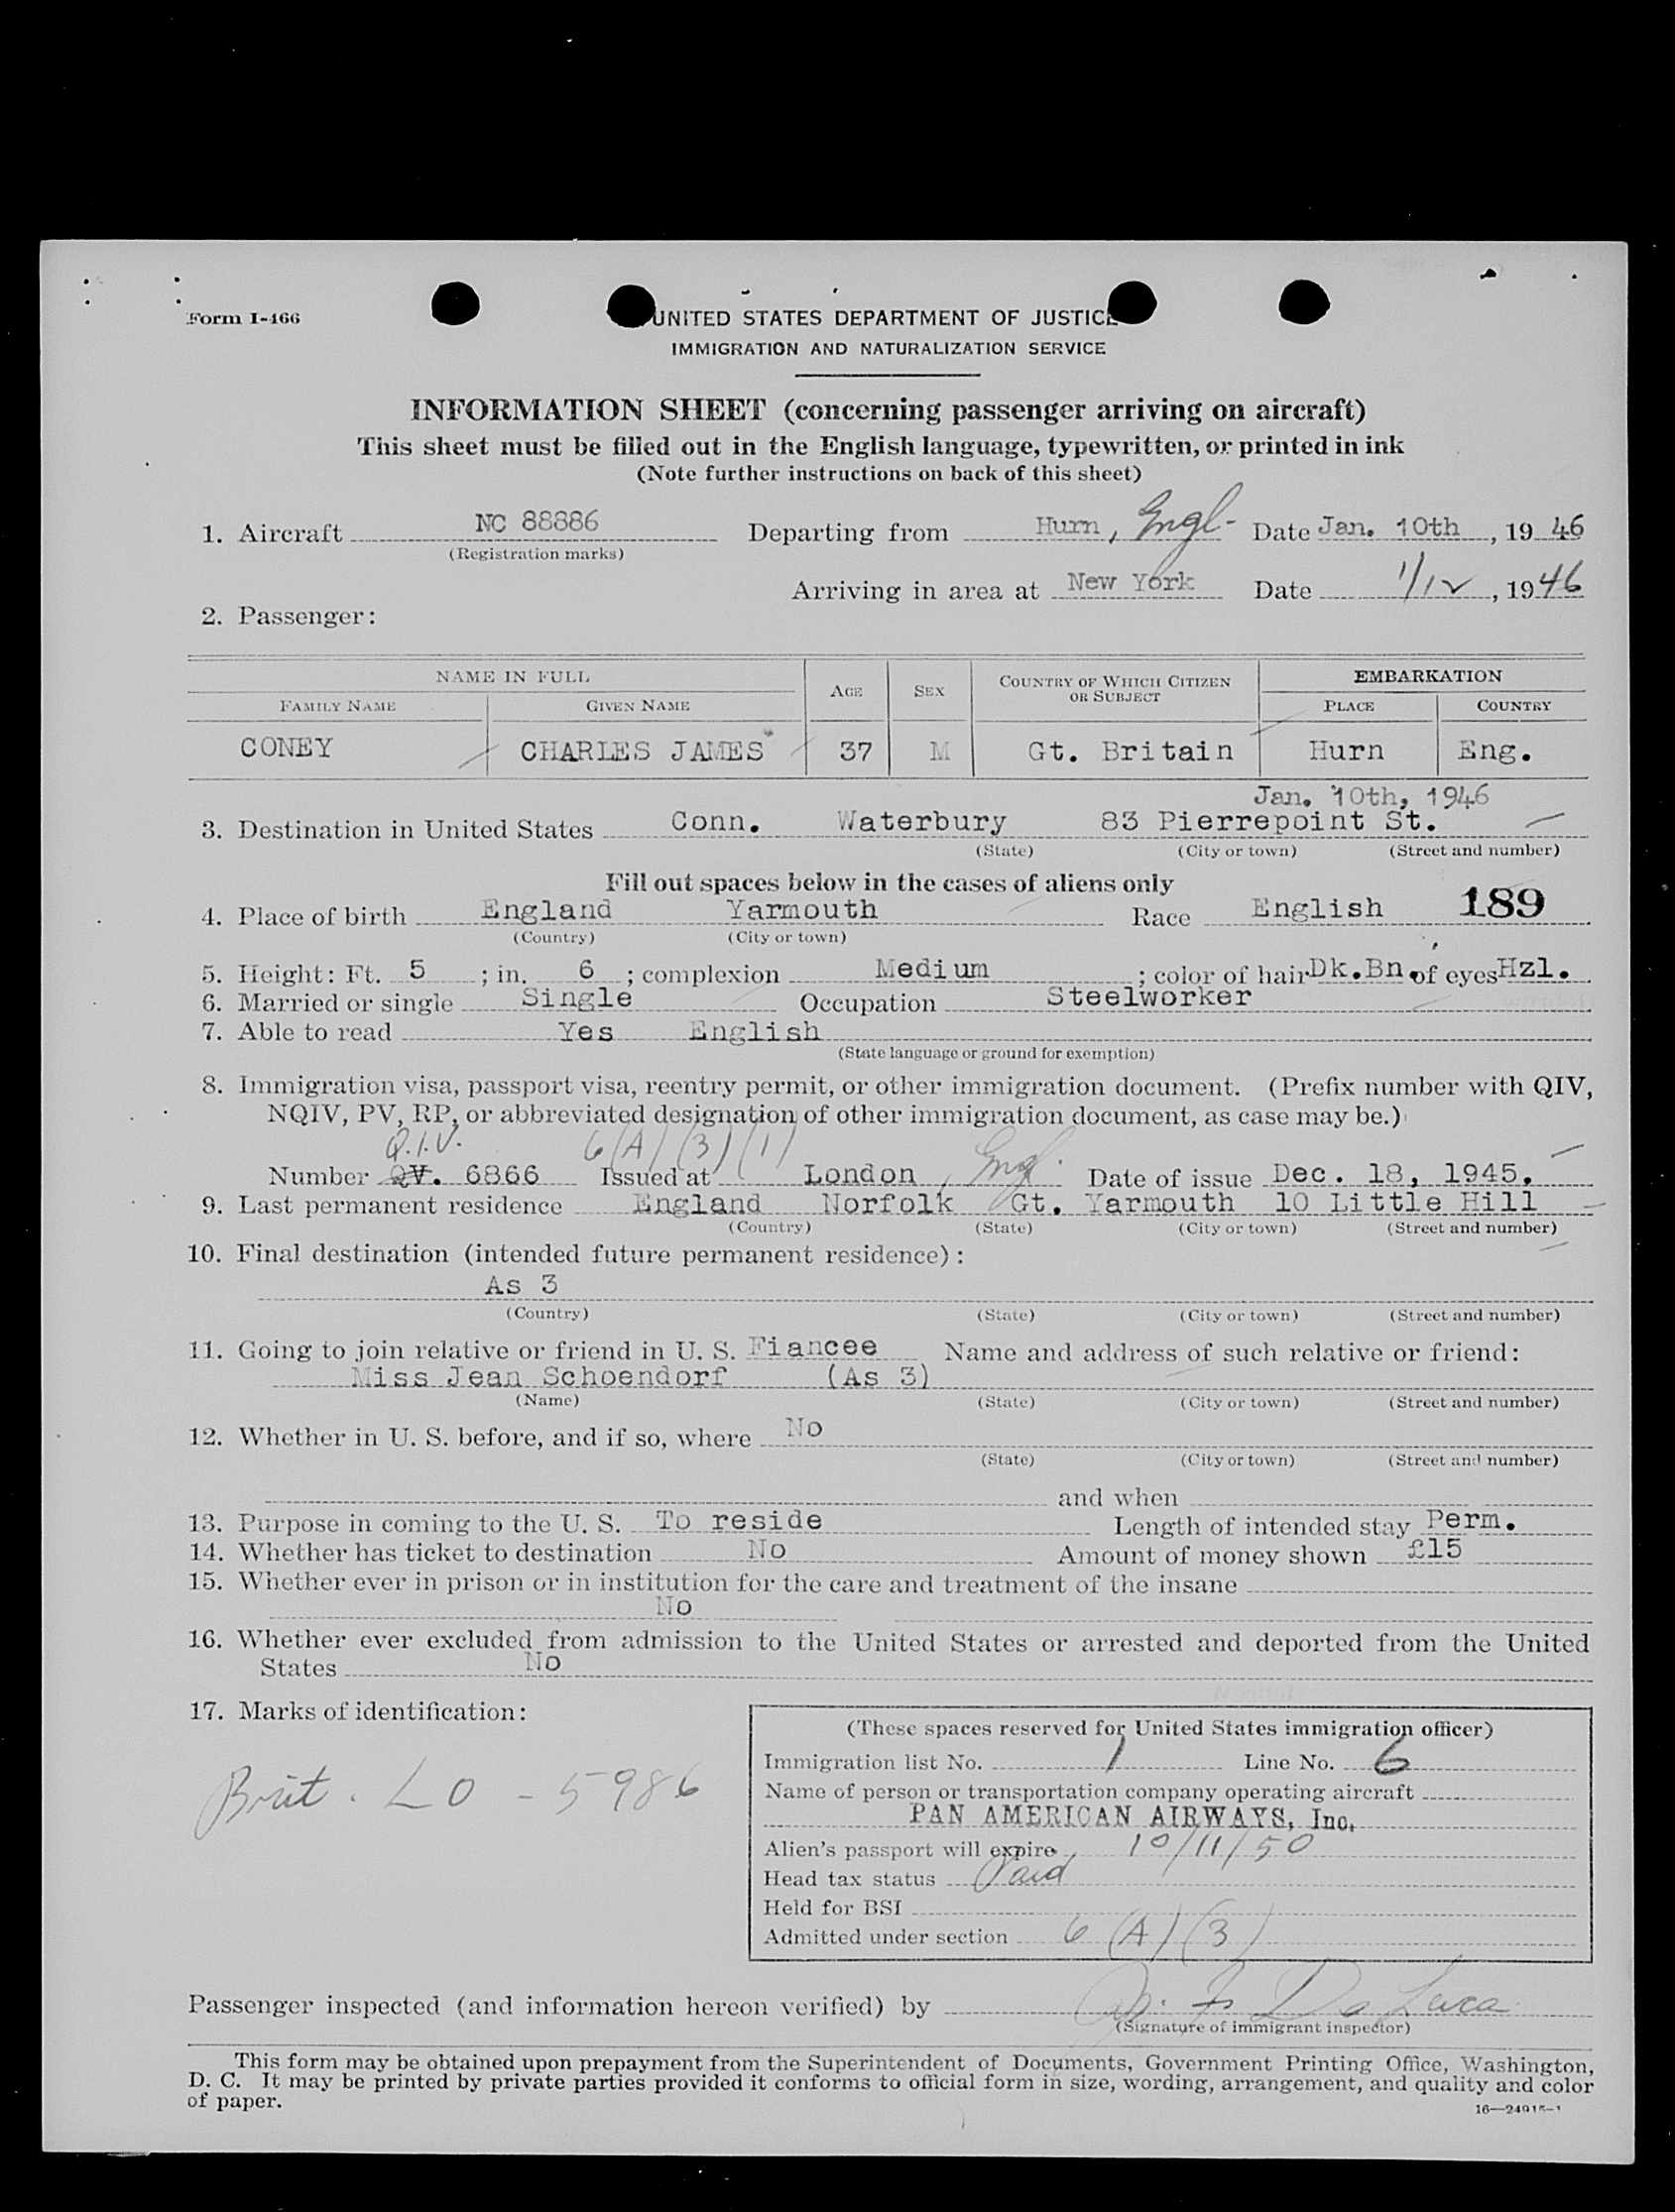 Form I-466
UNITED STATES DEPARTMENT OF JUSTICE
IMMIGRATION AND NATURALIZATION SERVICE
INFORMATION SHEET (concerning passenger arriving on aircraft)
This sheet must be filled out in the English language, typewritten, or printed in ink
(Note further instructions on back of this sheet)
1. Aircraft NC 88886 Departing from Hurn, Engl- Date Jan. 10th, 1946
(Registration marks)
Arriving in area at New York Date 1/12, 1946
2. Passenger:
NAME IN FULL AGE SEX COUNTRY OF WHICH CITIZEN OR SUBJECT EMBARKATION
FAMILY NAME GIVEN NAME PLACE COUNTRY
CONEY CHARLES JAMES 37 M Gt. Britain Hurn Eng.
Jan. 10th, 1946
3. Destination in United States Conn. Waterbury 83 Pierrepoint St.
(State) (City or town) (Street and number)
Fill out spaces below in the cases of aliens only
4. Place of birth England Yarmouth Race English 189
(Country) (City or town)
5. Height: Ft. 5; in. 6; complexion Medium; color of hair Dk.Bn of eyes Hzl.
6. Married or single Single Occupation Steelworker
7. Able to read Yes English
(State language or ground for exemption)
8. Immigration visa, passport visa, reentry permit, or other immigration document. (Prefix number with QIV,
NQIV, PV, RP, or abbreviated designation of other immigration document, as case may be.)
Q.I.V. 6(A)(3)(1)
Number QV. 6866 Issued at London, Engl. Date of issue Dec. 18, 1945.
9. Last permanent residence England Norfolk Gt. Yarmouth 10 Little Hill
(Country) (State) (City or town) (Street and number)
10. Final destination (intended future permanent residence):
As 3
(Country) (State) (City or town) (Street and number)
11. Going to join relative or friend in U. S. Fiancee Name and address of such relative or friend:
Miss Jean Schoendorf (As 3)
(Name) (State) (City or town) (Street and number)
12. Whether in U. S. before, and if so, where No
(State) (City or town) (Street and number)
and when
13. Purpose in coming to the U. S. To reside Length of intended stay Perm.
14. Whether has ticket to destination No Amount of money shown £15
15. Whether ever in prison or in institution for the care and treatment of the insane
No
16. Whether ever excluded from admission to the United States or arrested and deported from the United
States No
17. Marks of identification:
Brit. LO - 5986
(These spaces reserved for United States immigration officer)
Immigration list No. 1 Line No. 6
Name of person or transportation company operating aircraft
PAN AMERICAN AIRWAYS, Inc.
Alien's passport will expire 10/11/50
Head tax status Paid
Held for BSI
Admitted under section 6 (A) (3)
Passenger inspected (and information hereon verified) by
(Signature of immigrant inspector)
This form may be obtained upon prepayment from the Superintendent of Documents, Government Printing Office, Washington,
D. C. It may be printed by private parties provided it conforms to official form in size, wording, arrangement, and quality and color
of paper.
16—24915-1